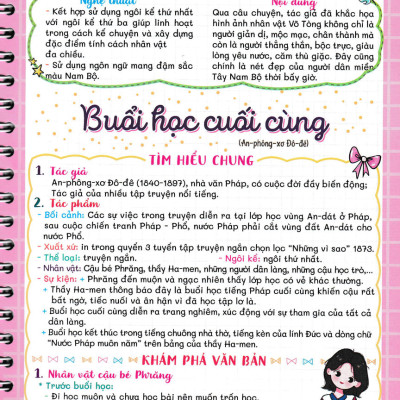 Nghệ thuật
- Kết hợp sử dụng ngôi kể thứ nhất
với ngôi kể thứ ba giúp linh hoạt
trong cách kể chuyện và xây dựng
đặc điểm tính cách nhân vật
đa chiều.
- Sử dụng ngôn ngữ mang đậm sắc
màu Nam Bộ.
Nội dung
Qua câu chuyện, tác giả đã khắc họa
hình ảnh nhân vật Võ Tòng không chỉ là
người giản dị, mộc mạc, chân thành mà
còn là người thẳng thắn, bộc trực, giàu
lòng yêu nước, căm thù giặc. Đây cũng
chính là nét đẹp của người dân miền
Tây Nam Bộ thời bấy giờ.
Buổi học cuối cùng
(An-phông-xơ Đô-đê)
TÌM HIỂU CHUNG
1. Tác giả
An-phông-xơ Đô-đê (1840-1897), nhà văn Pháp, có cuộc đời đầy biến động;
Tác giả của nhiều tập truyện nổi tiếng.
2. Tác phẩm
- Bối cảnh: Các sự việc trong truyện diễn ra tại lớp học vùng An-dát ở Pháp,
sau cuộc chiến tranh Pháp - Phổ, nước Pháp phải cắt vùng đất An-dát cho
nước Phổ.
- Xuất xứ: in trong quyển 3 tuyển tập truyện ngắn chọn lọc "Những vì sao" 1873.
- Thể loại: truyện ngắn. - Ngôi kể: ngôi thứ nhất.
- Nhân vật: Cậu bé Phrăng, thầy Ha-men, những người dân làng, những cậu học trò,...
- Sự kiện: + Phrăng đến muộn và ngạc nhiên thấy lớp học có vẻ khác thường.
+ Thầy Ha-men thông báo đây là buổi học tiếng Pháp cuối cùng khiến cậu rất
bất ngờ, tiếc nuối và ân hận vì đã học tập lơ là.
+ Buổi học cuối cùng diễn ra trang nghiêm, xúc động với sự tham gia của tất cả
dân làng.
+ Buổi học kết thúc trong tiếng chuông nhà thờ, tiếng kèn của lính Đức và dòng chữ
"Nước Pháp muôn năm" trên bảng của thầy Ha-men.
KHÁM PHÁ VĂN BẢN
1. Nhân vật cậu bé Phrăng
* Trước buổi học:
- Đi học muộn và chưa học bài nên muốn trốn học.